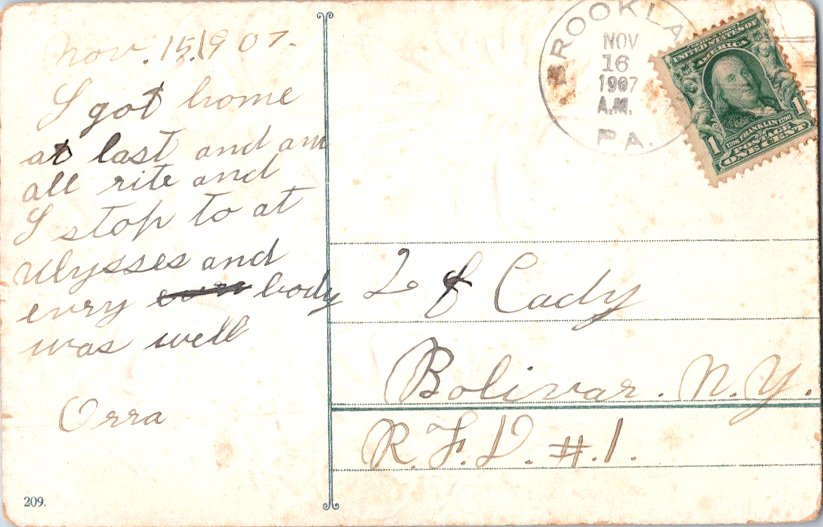 Nov. 15, 1907.
I got home
at last and am
all rite and
I stop to at
Ulysses and
evry body
was well
Orra
209.
BROOKLA
NOV
16
1907
A.M.
PA.
UNITED STATES OF
AMERICA
1790 FRANKLIN 1790
POSTAGE
1 ONE CENT 1
L f Cady
Bolivar. N.Y.
R.F.D. #.1.